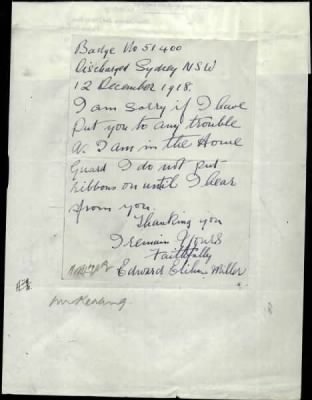 Badge No 51400
Discharged Sydney NSW
12 December 1918.
I am sorry if I have
Put you to any trouble
As I am in the Home
Guard I do not put
ribbons on until I hear
from you.
Thanking you
I remain Yours
Faithfully
Edward Miller